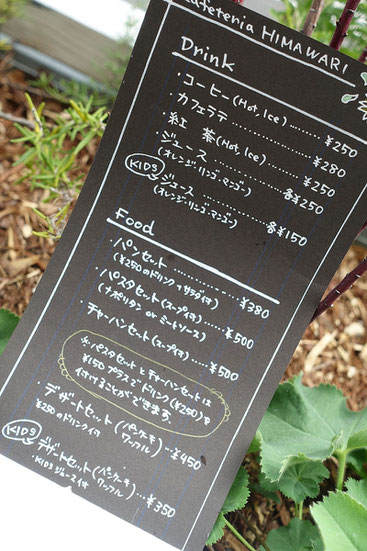 Cafeteria HIMAWARI
Drink
・コーヒー(Hot, Ice)……¥250
・カフェラテ……¥280
・紅 茶(Hot, Ice)……¥250
・ジュース……各¥250
(オレンジ・リンゴ・マンゴー)
KIDS ジュース……各¥150
(オレンジ・リンゴ・マンゴー)
Food
・パンセット……¥380
(¥250のドリンク+サラダ付)
・パスタセット(スープ付)……¥500
(ナポリタン or ミートソース)
・チャーハンセット(スープ付)……¥500
※パスタセットとチャーハンセットは
¥150プラスでドリンク(¥250)を
付けることができます。
・デザートセット(パンケーキ ワッフル)…¥450
¥250のドリンク付
KIDS デザートセット(パンケーキ ワッフル)…¥350
・KIDSジュース付